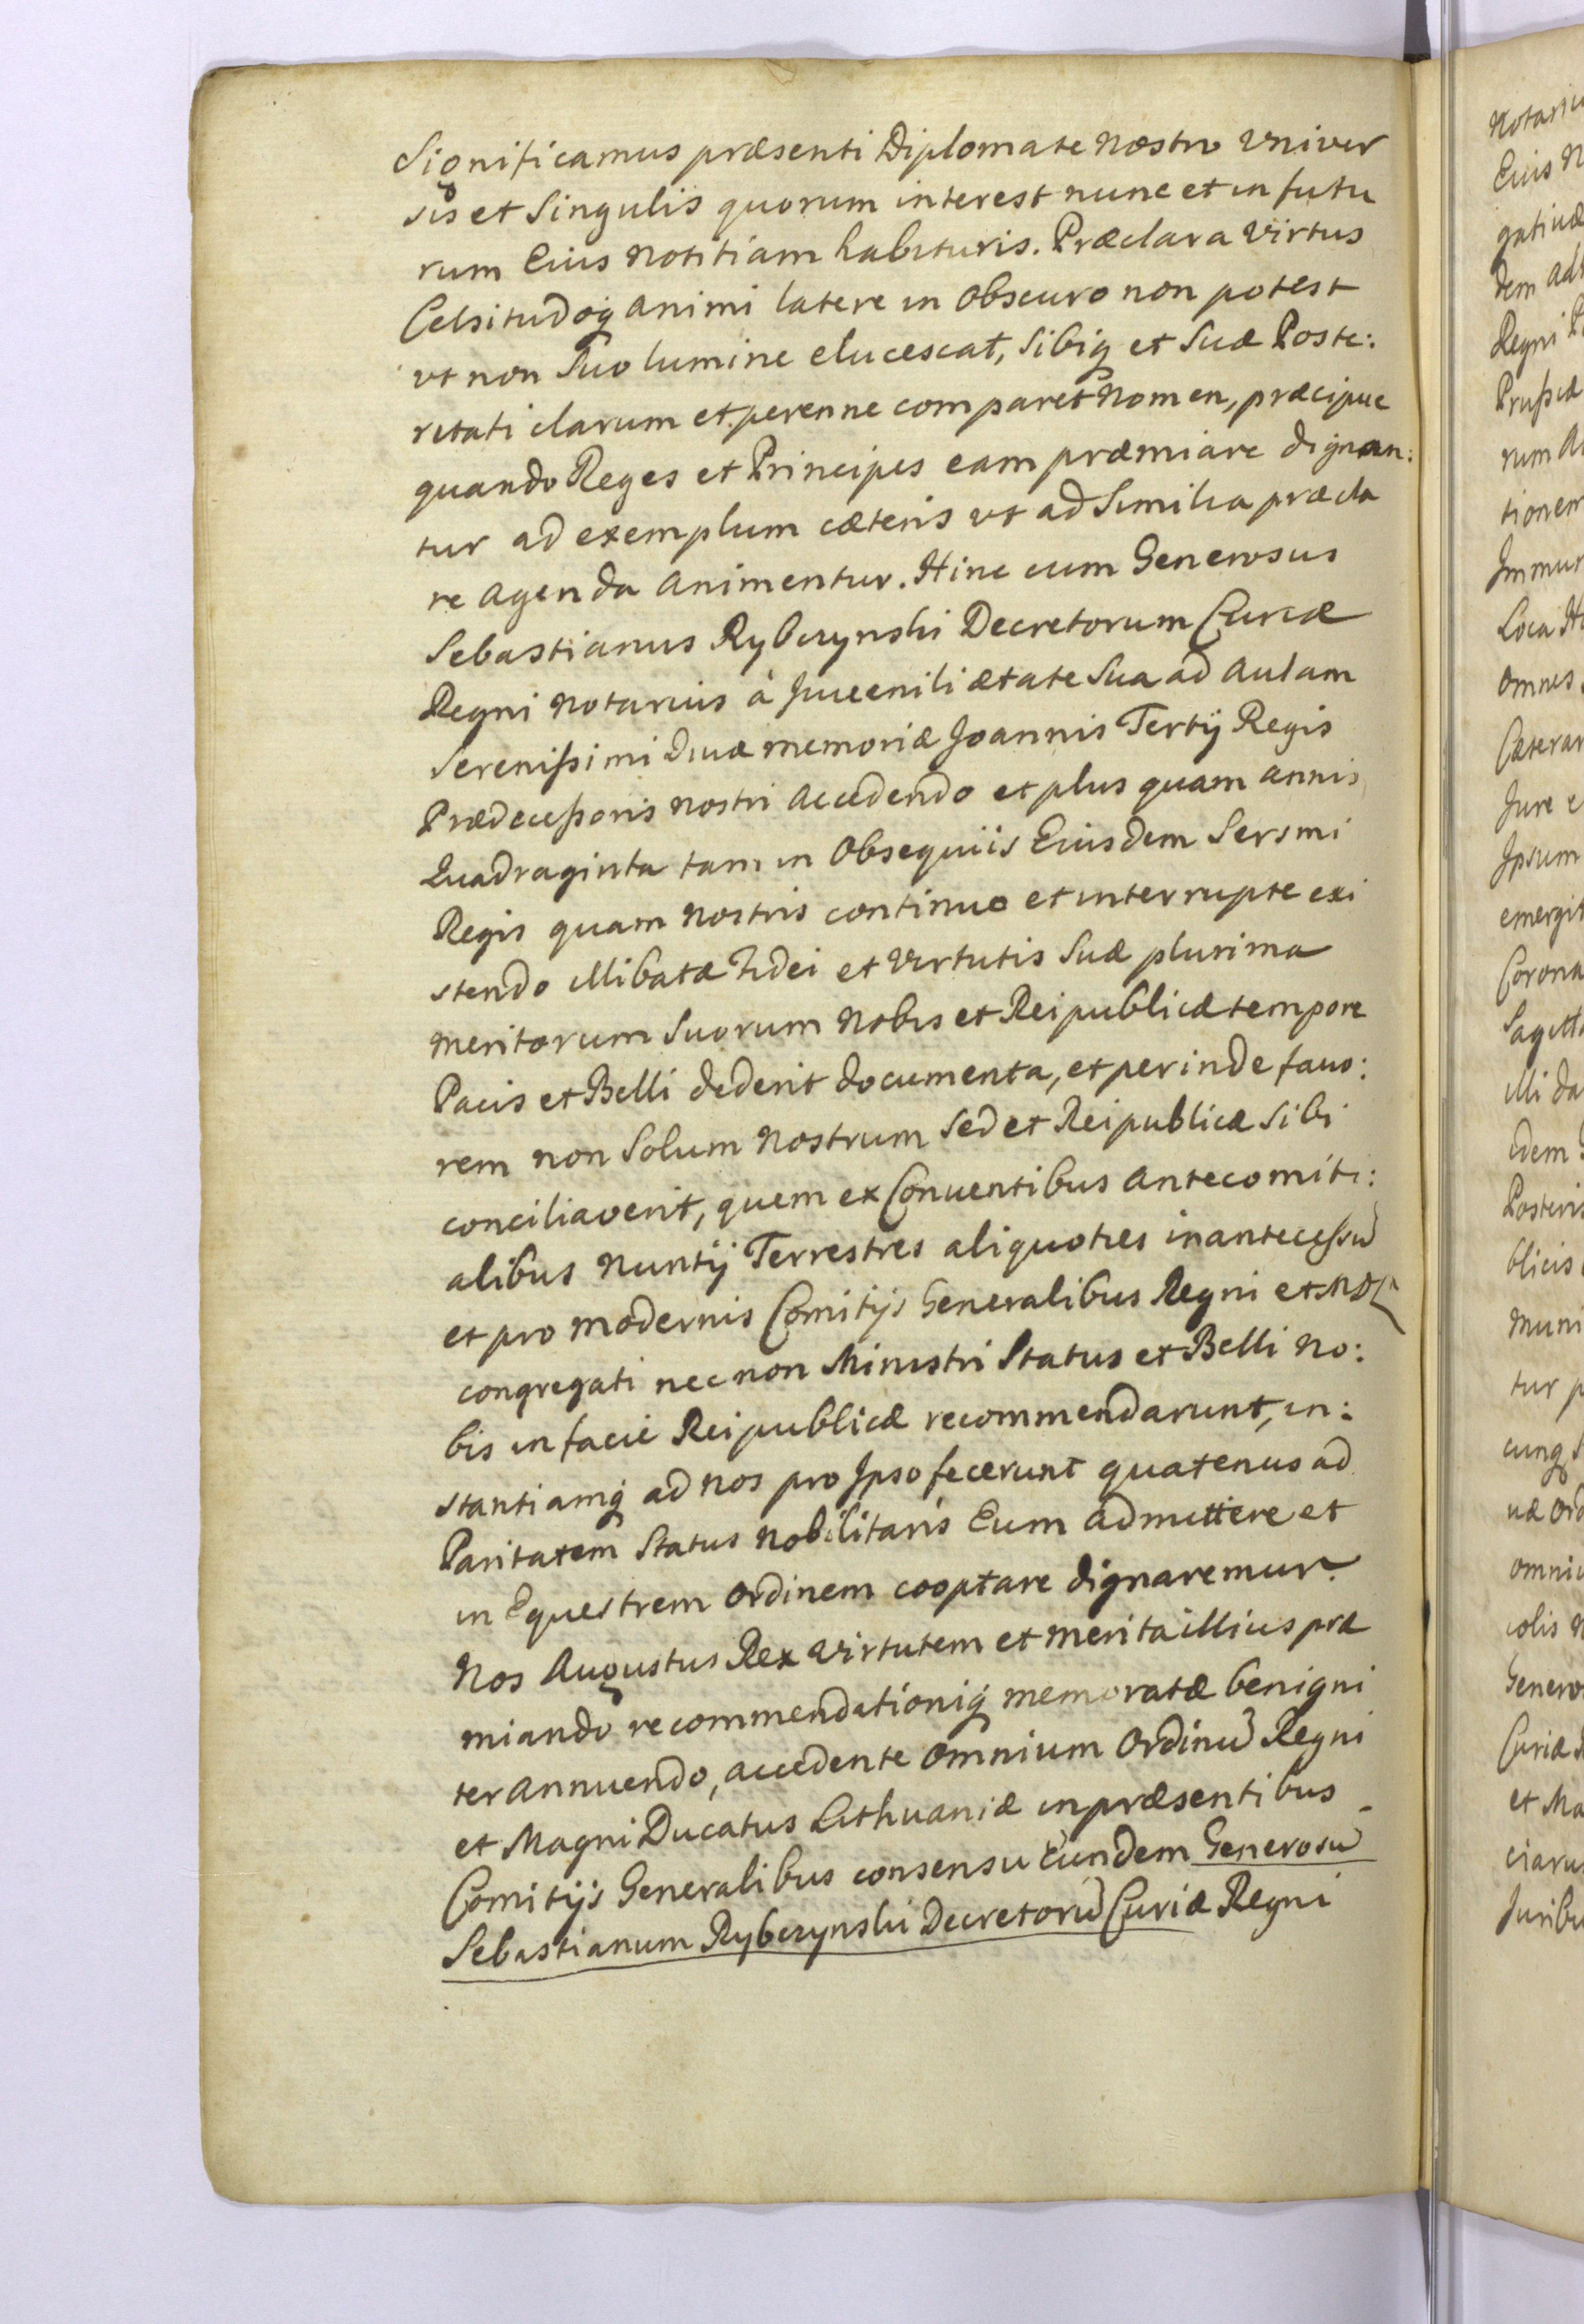 Significamus præsenti Diplomate nostro Univer
sis et Singulis quorum interest nunc et in futu
rum Eius notitiam habituris. Præclara Virtus
Celsitudoq animi latere in Obscuro non potest
vt non Suo lumine elucescat, Sibiq et Suæ Poste:
ritati clarum et perenne comparet Nomen, præcipue
quando Reges et Principes eam præmiare dignan:
tur ad exemplum cæteris vt ad Similia præcla
re Agenda Animentur. Hinc cum Generosus
Sebastianus Rybczynski Decretorum Curiæ
Regni Notarius à Juvenili ætate Sua ad Aulam
Serenißimi Divæ memoriæ Joannis Tertij Regis
Prædeceßoris Nostri Accedendo et plus quam annis
Quadraginta tam in Obsequiis Eiusdem Sersmi
Regis quam Nostris continuo et interrupte exi
stendo illibatæ Fidei et Virtutis Suæ plurima
meritorum Suorum Nobis et Reipublicæ tempore
Pacis et Belli dederit documenta, et perinde favo:
rem non Solum Nostrum Sed et Reipublicæ Sibi
conciliaverit, quem ex Conventibus Antecomiti:
alibus Nuntij Terrestres aliquoties in anteceßu
et pro modernis Comitijs Generalibus Regni et MDL
congregati nec non Ministri Status et Belli No:
bis in facie Reipublicæ recommendarunt, in:
stantiamq ad nos pro Ipso fecerunt quatenus ad
Paritatem Status Nobilitaris Eum admittere et
in Equestrem Ordinem cooptare dignaremur.
Nos Augustus Rex Virtutem et merita illius præ
miando recommendationiq memoratæ benigni
ter Annuendo, accedente Omnium Ordinu Regni
et Magni Ducatus Lithuaniæ in præsentibus
Comitijs Generalibus consensu Eundem Generosu
Sebastianum Rybczynski Decretoru Curiæ Regni
Eius N
dem ad
Regni
Prußiæ
num A
tionem
Loca
omnes
Jure e
Ipsum
emergit
Corona
illi da
idem
blicis
muni
tur p
omni
colis N
Curiæ
et Ma
Juribu